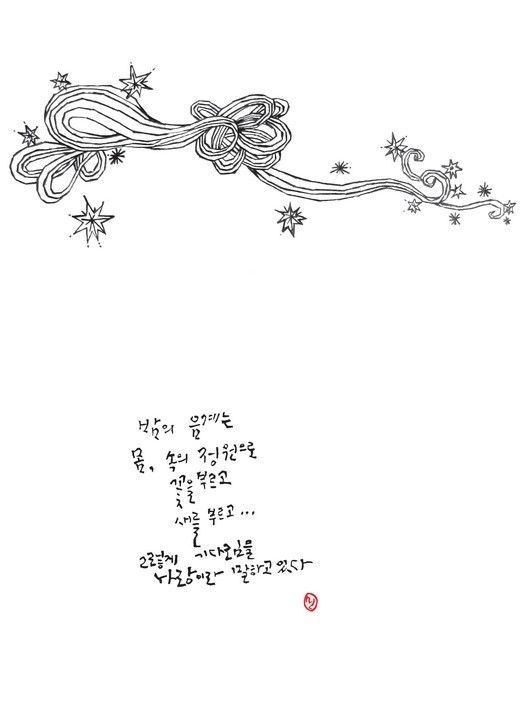 밤의 음계는
몸, 속의 정원으로
꽃을 부르고
새를 부르고...
그렇게 기다림을
사랑이라 말하고 있다